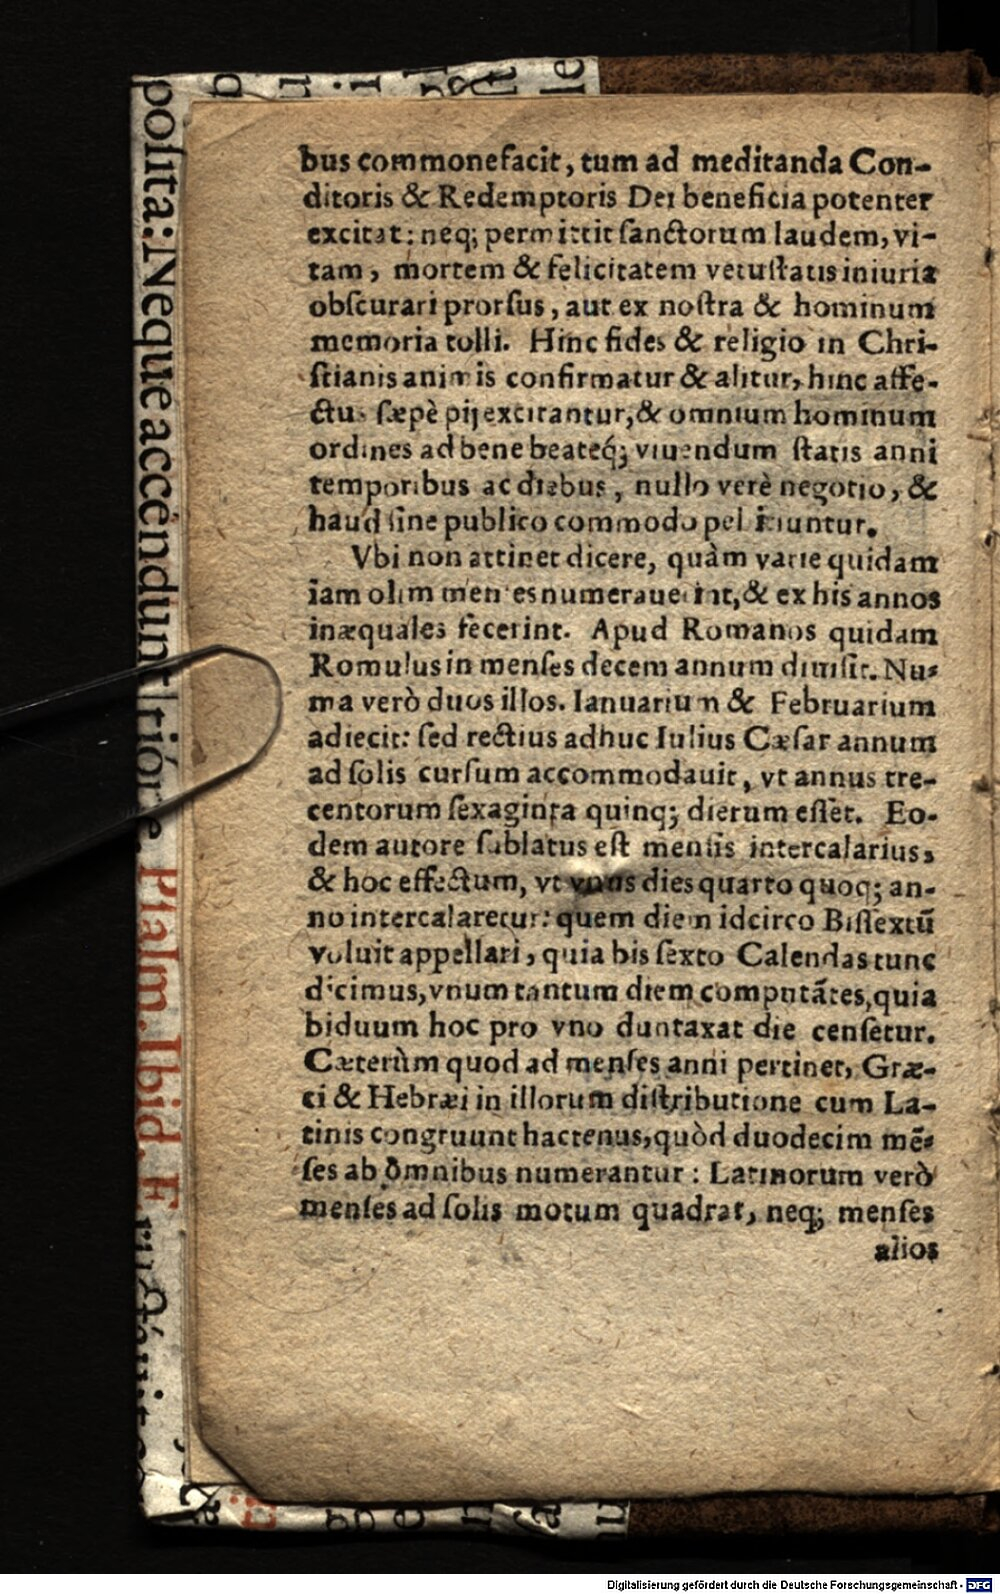 bus commonefacit, tum ad meditanda Con-
ditoris & Redemptoris Dei beneficia potenter
excitat: neq; permittit ſanctorum laudem, vi-
tam, mortem & felicitatem vetuſtatis iniuria
obſcurari prorſus, aut ex noſtra & hominum
memoria tolli. Hinc fides & religio in Chri-
ſtianis animis confirmatur & alitur, hinc affe-
ctus ſæpè pij excitantur, & omnium hominum
ordines ad bene beateq́; viuendum ſtatis anni
temporibus ac diebus, nullo verè negotio, &
haud ſine publico commodo pelliciuntur.
Vbi non attinet dicere, quàm varie quidam
iam olim menſes numerauerint, & ex his annos
inæquales fecerint. Apud Romanos quidam
Romulus in menſes decem annum diuiſit. Nu-
ma verò duos illos. Ianuarium & Februarium
adiecit: ſed rectius adhuc Iulius Cæſar annum
ad ſolis curſum accommodauit, vt annus tre-
centorum ſexaginta quinq; dierum eſſet. Eo-
dem autore ſublatus eſt menſis intercalarius,
& hoc effectum, vt vnus dies quarto quoq; an-
no intercalaretur: quem diem idcirco Biſſextū
voluit appellari, quia bis ſexto Calendas tunc
dicimus, vnum tantum diem computātes, quia
biduum hoc pro vno duntaxat die cenſetur.
Cæterùm quod ad menſes anni pertinet, Græ-
ci & Hebræi in illorum diſtributione cum La-
tinis congruunt hactenus, quòd duodecim mē-
ſes ab omnibus numerantur: Latinorum verò
menſes ad ſolis motum quadrat, neq; menſes
alios
poſita: Neque accéndunt
Pſalm. Ibid. F
Digitalisierung gefördert durch die Deutsche Forschungsgemeinschaft - DFG